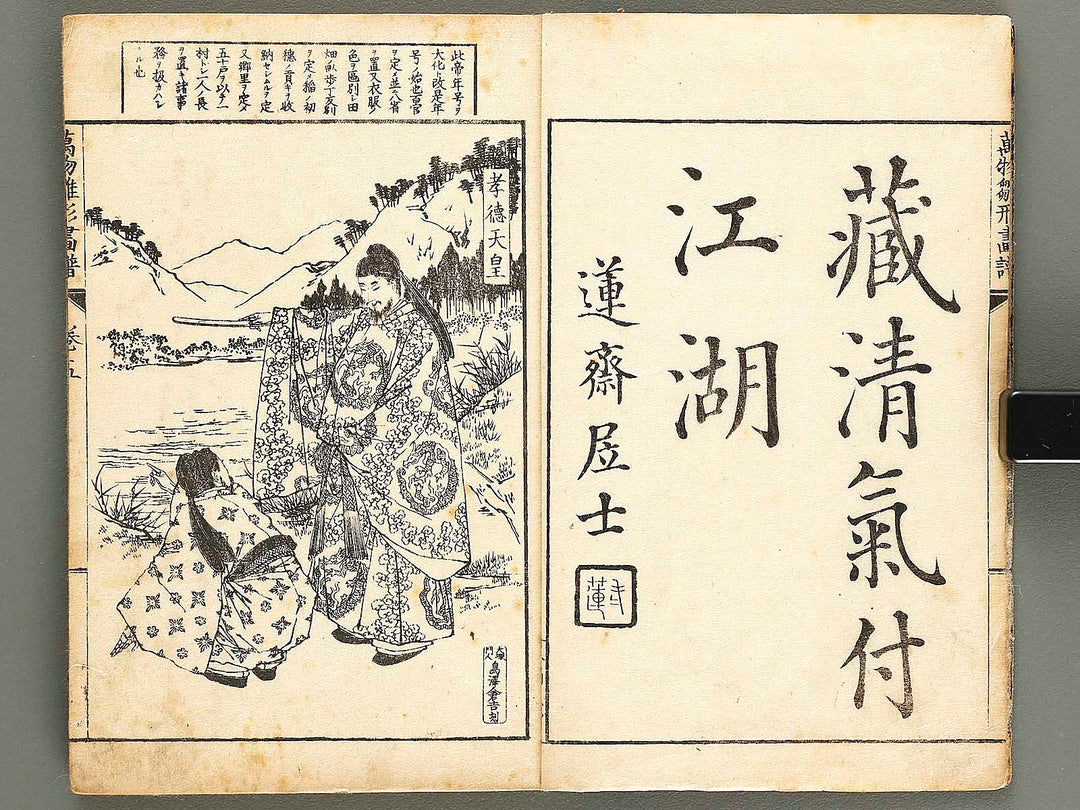 萬物雛形畫譜
藏清氣付
江湖
蓮齋居士
此帝年号ヲ
大化ト改是年
号ノ始也百官
ヲ定メ並ニ八省
ヲ置又衣服ノ
色ヲ區別シ田
畑畝歩
ヲ定メ稲ノ初
穂ノ貢ギヲ收
納セシムルヲ定
又郷里ヲ定メ
五十戸ヲ以テ一
村トシ一人ノ長
ヲ置キ諸事
務ヲ扱カハシ
ル也
孝德天皇
倉吉刻
萬物雛形畫譜
五